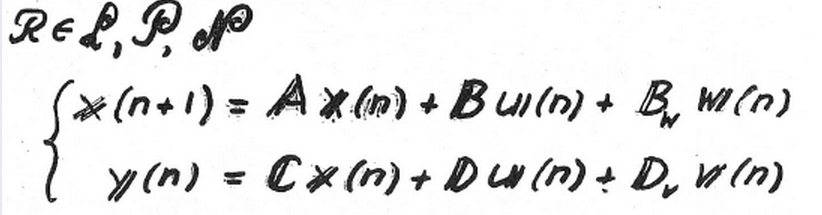 ℛ ∈ ℒ, 𝒫, 𝒩𝒫
x(n+1) = A x(n) + B u(n) + B_w w(n)
y(n) = C x(n) + D u(n) + D_v v(n)